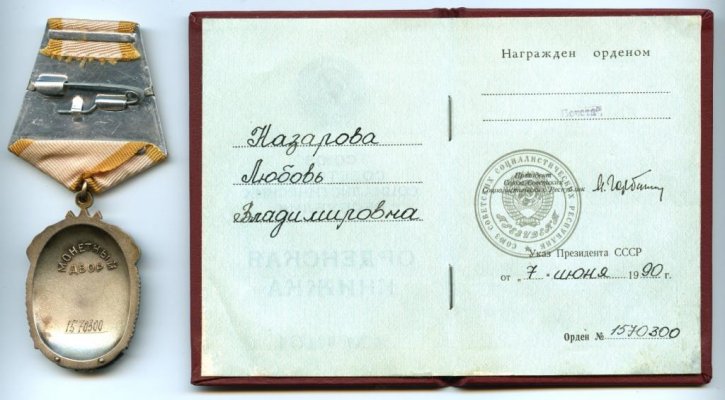 МОНЕТНЫЙ
ДВОР
1570300
Назарова
Любовь
Владимировна
ОРДЕНСКАЯ
КНИЖКА
Награжден орденом
Президент
Союза Советских
Социалистических Республик
СОЮЗ СОВЕТСКИХ СОЦИАЛИСТИЧЕСКИХ РЕСПУБЛИК
Указ Президента СССР
от „7" июня 1990 г.
Орден № 1570300